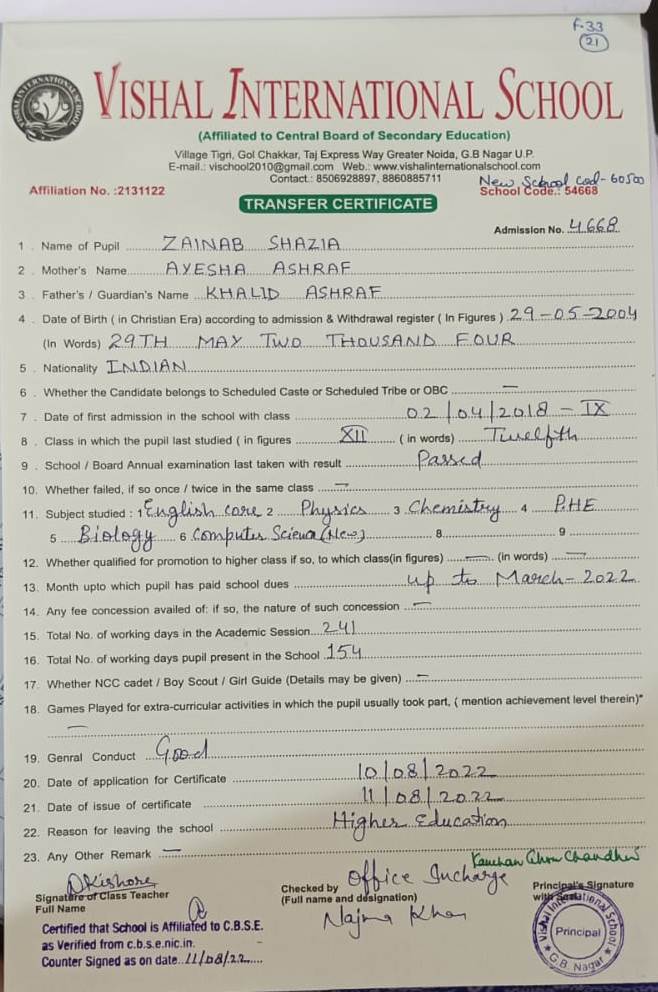 F-33
21
VISHAL INTERNATIONAL SCHOOL
VISHAL INTERNATIONAL SCHOOL
(Affiliated to Central Board of Secondary Education)
Village Tigri, Gol Chakkar, Taj Express Way Greater Noida, G.B Nagar U.P.
E-mail.: vischool2010@gmail.com Web.: www.vishalinternationalschool.com
Contact.: 8506928897, 8860885711
New School Cod- 60500
Affiliation No. :2131122 School Code.: 54668
TRANSFER CERTIFICATE
Admission No. 4668
1 . Name of Pupil ZAINAB SHAZIA
2 . Mother's Name AYESHA ASHRAF
3 . Father's / Guardian's Name KHALID ASHRAF
4 . Date of Birth ( in Christian Era) according to admission & Withdrawal register ( In Figures ) 29-05-2004
(In Words) 29TH MAY TWO THOUSAND FOUR
5 . Nationality INDIAN
6 . Whether the Candidate belongs to Scheduled Caste or Scheduled Tribe or OBC —
7 . Date of first admission in the school with class 02/04/2018 - IX
8 . Class in which the pupil last studied ( in figures XII ( in words) Twelfth
9 . School / Board Annual examination last taken with result Passed
10. Whether failed, if so once / twice in the same class —
11. Subject studied : 1 English core 2 Physics 3 Chemistry 4 P.HE
5 Biology 6 Computer Science (New) 8 9
12. Whether qualified for promotion to higher class if so, to which class(in figures) — (in words) —
13. Month upto which pupil has paid school dues up to March-2022
14. Any fee concession availed of: if so, the nature of such concession —
15. Total No. of working days in the Academic Session 241
16. Total No. of working days pupil present in the School 154
17. Whether NCC cadet / Boy Scout / Girl Guide (Details may be given) —
18. Games Played for extra-curricular activities in which the pupil usually took part, ( mention achievement level therein)*
—
19. Genral Conduct Good
20. Date of application for Certificate 10/08/2022
21. Date of issue of certificate 11/08/2022
22. Reason for leaving the school Higher Education
23. Any Other Remark —
DKishore
Signature of Class Teacher
Full Name
Checked by Office Incharge
(Full name and designation)
Najma Khan
Principal's Signature
with Seal
Certified that School is Affiliated to C.B.S.E.
as Verified from c.b.s.e.nic.in.
Counter Signed as on date..11/08/22
Vishal International School
Principal
G.B. Nagar